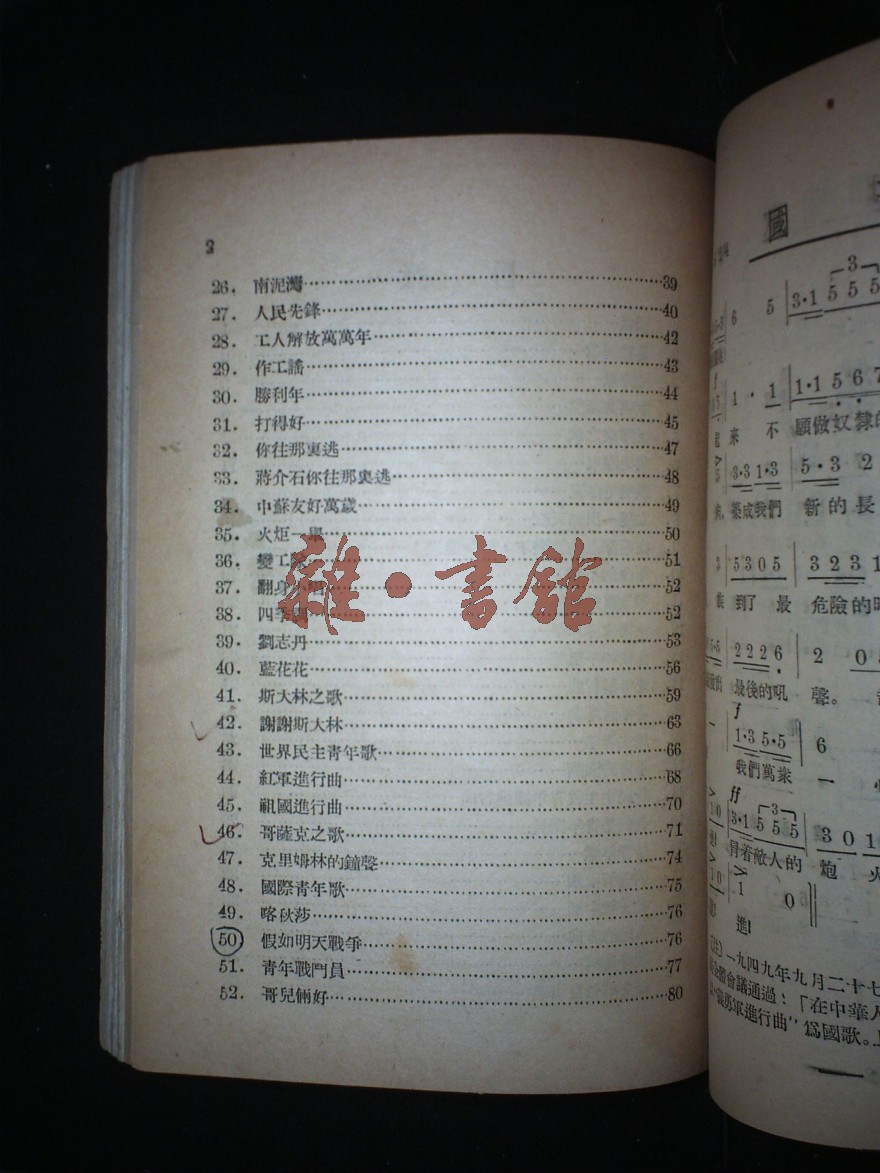 2
26. 南泥灣 39
27. 人民先鋒 40
28. 工人解放萬萬年 42
29. 作工謠 43
30. 勝利年 44
31. 打得好 45
32. 你往那裏逃 47
33. 蔣介石你往那裏逃 48
34. 中蘇友好萬歲 49
35. 火炬一 50
36. 變工隊 51
37. 翻身 52
38. 四季 52
39. 劉志丹 53
40. 藍花花 56
41. 斯大林之歌 59
42. 謝謝斯大林 63
43. 世界民主青年歌 66
44. 紅軍進行曲 68
45. 祖國進行曲 70
46. 哥薩克之歌 71
47. 克里姆林的鐘聲 74
48. 國際青年歌 75
49. 喀秋莎 76
50. 假如明天戰爭 76
51. 青年戰鬥員 77
52. 哥兒倆好 80
雜·書館
國
3
6 5 3·1 5 5 5
1 · 1 1·1 5 6 7
來 不 願做奴隸的
3·3 1·3 5·3 2
築成我們 新的長
5 3 0 5 3 2 3 1
到了 最 危險的時
2 2 2 6 2 0
最後的吼 聲。
f
1·3 5·5 6
我們萬衆 一
ff 3
3·1 5 5 5 3 0 1
冒着敵人的 炮 火
1 0
進!
一九四九年九月二十七
體會議通過:「在中華人
勇軍進行曲”爲國歌。